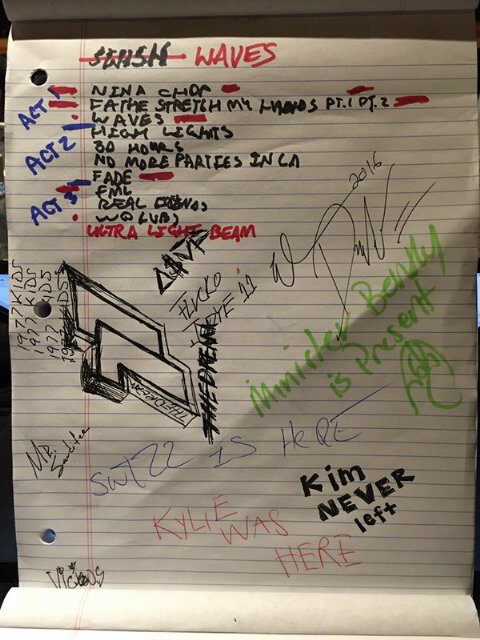 SWISH WAVES
ACT 1
NINA CHOP
FATHE STRETCH MY HANDS PT.1 PT.2
WAVES
ACT 2
HIGH LIGHTS
30 HOURS
NO MORE PARTIES IN LA
ACT 3
FADE
FML
REAL FRIENDS
WOLVES
ULTRA LIGHT BEAM
2016
1977 KIDS
1977 KIDS
1977 KIDS
FLACKO
THEDREAM
THEDREAM
Minister Bently
is Present
MR.
SWIZZ IS HERE
Kim
NEVER
left
KYLIE
WAS
HERE